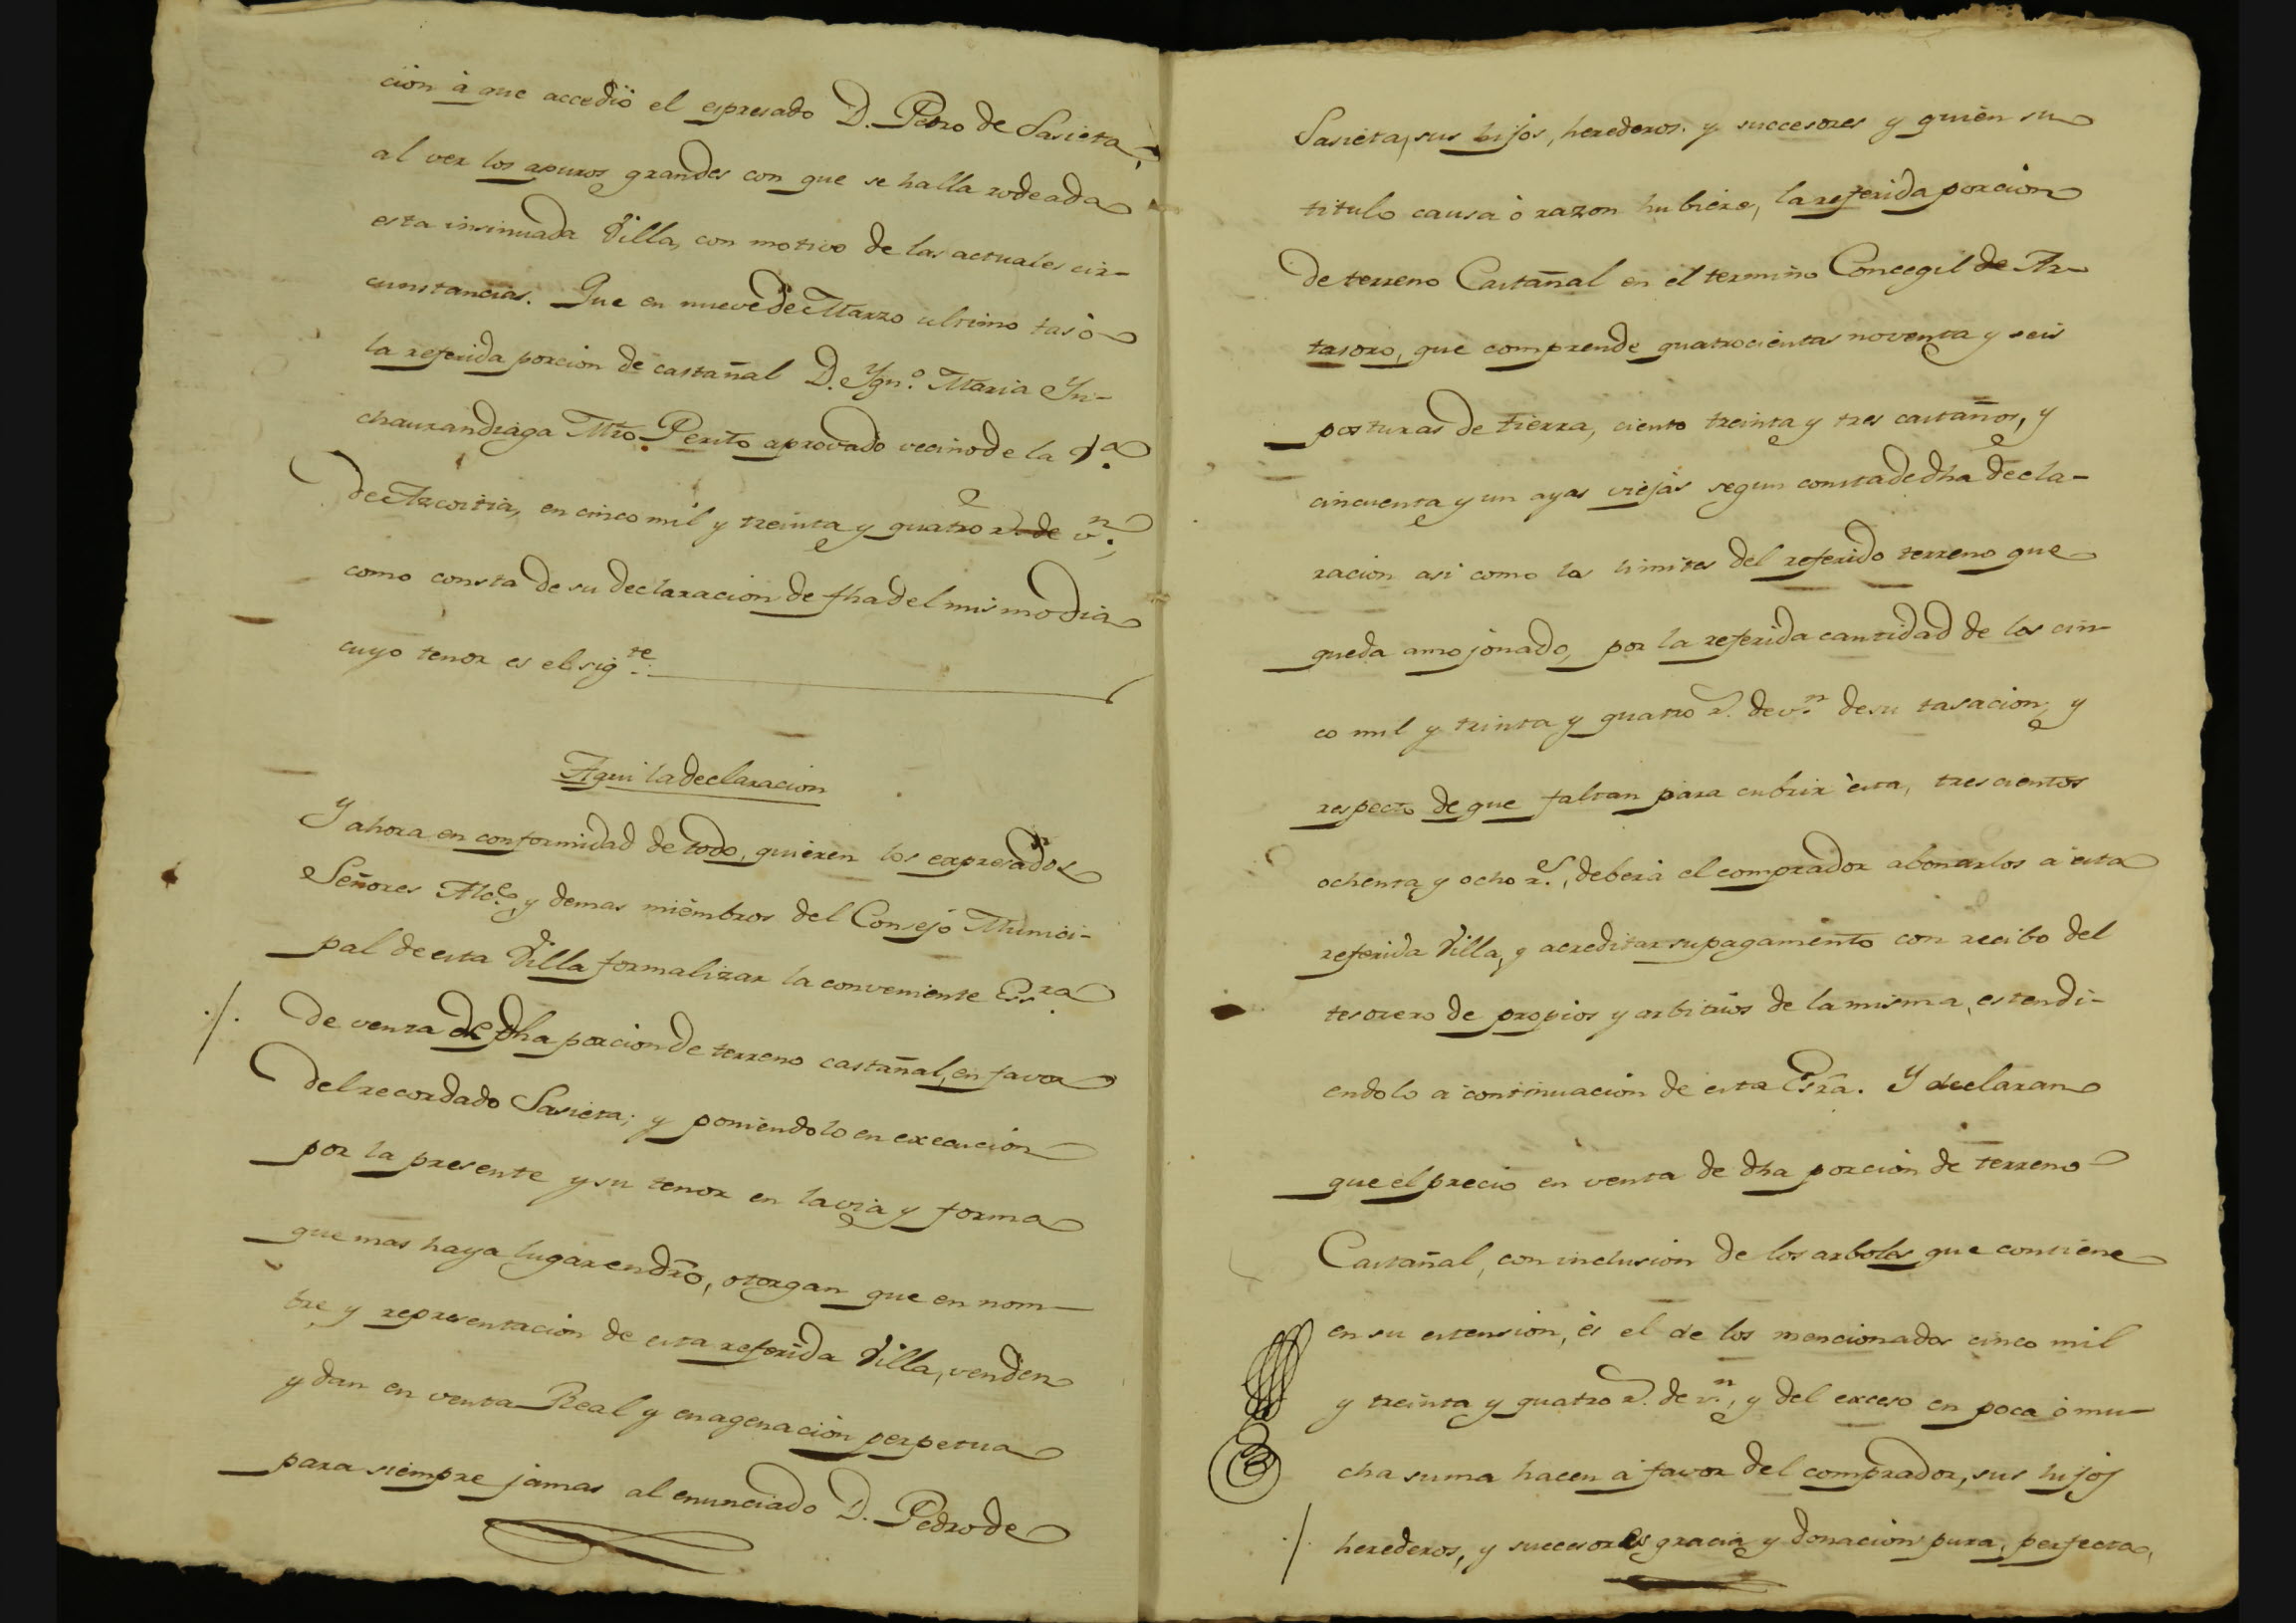 cion à que accedio el espresado D. Pedro de Sasieta,
al ver los apuros grandes con que se halla rodeada
esta insinuada Villa, con motivo de las actuales cir-
cunstancias. Que en nueve de Marzo ultimo tasò
la referida porcion de castañal D. Ygn.º Maria Yn-
chaurandiaga Mro Perito aprovado vecino de la V.ª
de Azcoitia, en cinco mil y treinta y quatro r.s de v.n,
como consta de su declaracion de fha del mismo dia
cuyo tenor es el sig.te
Aqui la declaracion
Y ahora en conformidad de todo, quieren los expresados
Señores Alc.e y demas miembros del Consejo Munici-
pal de esta Villa formalizar la conveniente Ess.ra
de venta de dha porcion de terreno castañal, en favor
del recordado Sasieta; y poniendolo en execucion
por la presente y su tenor en la via y forma
que mas haya lugar en dro, otorgan que en nom-
bre y representacion de esta referida Villa, venden
y dan en venta Real y enagenacion perpetua
para siempre jamas al enunciado D. Pedro de
Sasieta, sus hijos, herederos, y succesores y quien su
titulo causa ò razon hubiere, la referida porcion
de terreno Castañal en el termino Concegil de Ar-
tasoro, que comprende quatrocientas noventa y seis
posturas de tierra, ciento treinta y tres castaños, y
cincuenta y un ayas viejas segun consta de dha decla-
racion asi como los limites del referido terreno que
queda amojonado, por la referida cantidad de los cin-
co mil y treinta y quatro r.s de v.n de su tasacion, y
respecto de que faltan para cubrir èsta, trescientos
ochenta y ocho r.s, deberà el comprador abonarlos à esta
referida Villa, y acreditar su pagamento con recibo del
tesorero de propios y arbitrios de la misma, estendi-
endolo a continuacion de esta Esrã. Y declaran
que el precio en venta de dha porcion de terreno
Castañal, con inclusion de los arboles que contiene
en su estension, es el de los mencionados cinco mil
y treinta y quatro r.s de v.n, y del exceso en poca ò mu-
cha suma hacen à favor del comprador, sus hijos
herederos, y succesores gracia y donacion pura, perfecta,